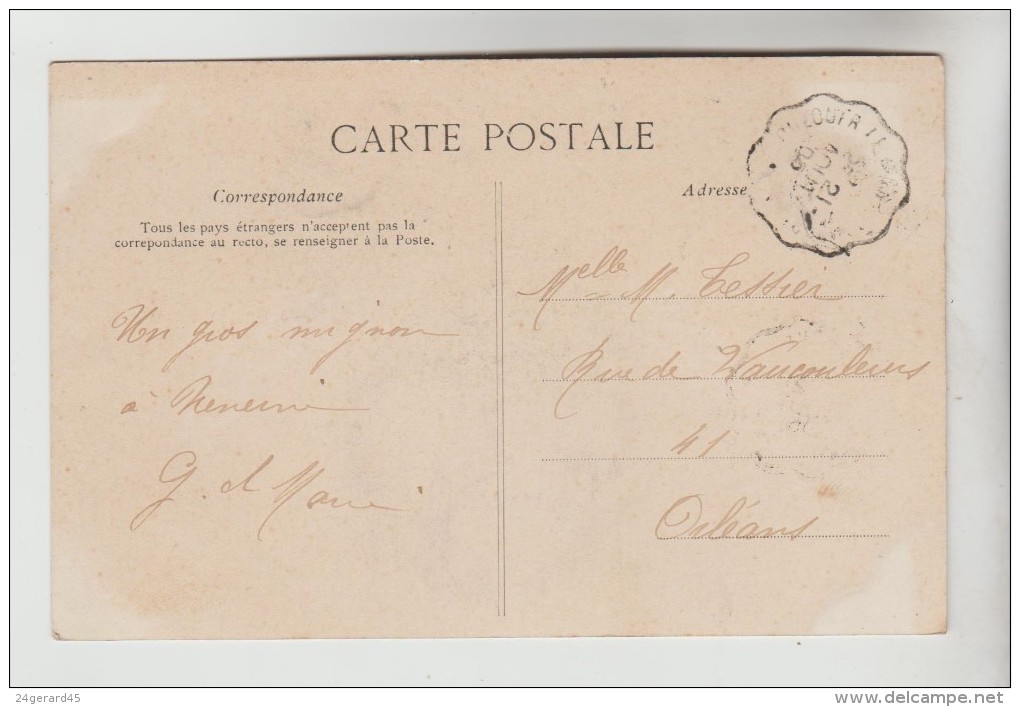 CARTE POSTALE
Correspondance
Tous les pays étrangers n'acceptent pas la
correpondance au recto, se renseigner à la Poste.
Un gros mignon
à
G. et Marie
Adresse
Melle M. Tessier
Rue de Vaucouleurs
41
Orléans
24gerard45
www.delcampe.net